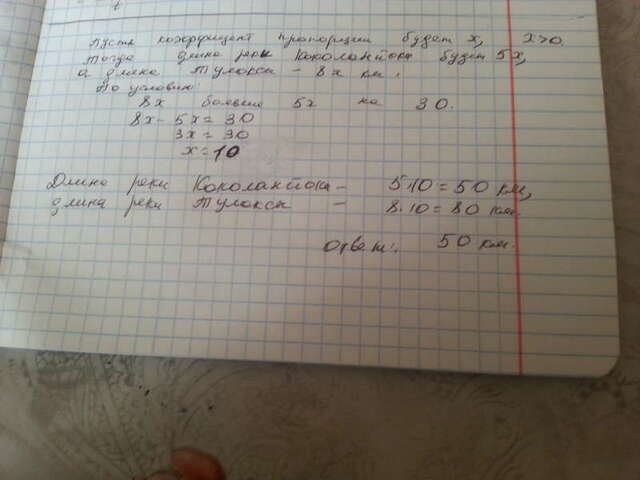 Пусть коэффициент пропорции будет x, x>0.
Тогда длина реки Коколантйока будет 5x,
а длина Тулоксы - 8x км.
По условию:
8x больше 5x на 30.
8x - 5x = 30
3x = 30
x = 10
Длина реки Коколантйока - 5·10 = 50 км,
длина реки Тулоксы - 8·10 = 80 км.
ответ: 50 км.